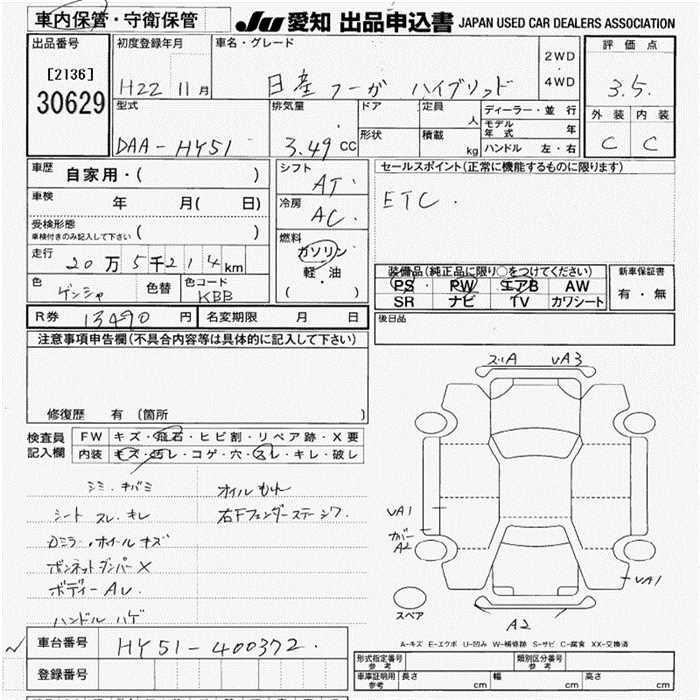 車内保管・守衛保管 JU 愛知 出品申込書 JAPAN USED CAR DEALERS ASSOCIATION
出品番号 初度登録年月 車名・グレード 評価点
[2136] H22 11月 日産 フーガ ハイブリッド 2WD・4WD 3.5
30629 型式 排気量 ドア 定員 人 ディーラー・並行 外装 内装
形状 積載 kg モデル年式 年
DAA-HY51 3.49 cc ハンドル 左・右 C C
車歴 自家用・( ) シフト AT セールスポイント(正常に機能するものに限ります)
車検 年 月( 日) 冷房 AC ETC
受検形態
車検付きのみ記入して下さい ( ) 燃料
走行 20万5千214km ガソリン
軽・油 装備品(純正品に限り○をつけてください) 新車保証書
色 ゲンシャ 色替 色コード KBB ( ・ ) PS PW エアB AW 有・無
SR ナビ TV カワシート
R券 13490 円 名変期限 月 日 後日品
注意事項申告欄(不具合内容等は具体的に記入して下さい)
ズリA UA3
修復歴 有 (箇所 )
検査員 FW キズ・飛石・ヒビ割・リペア跡・X要
記入欄 内装 キズ・汚レ・コゲ・穴・スレ・キレ・破レ
シミ・キバミ オイルもれ
シート スレ・キレ 右Fフェンダーステーシワ
Dミラー・ホイールキズ
ボンネットダンパーX
ボディーAU
ハンドルハゲ
UA1
ガバーA2
UA1
スペア A2
車台番号 HY51-400372 A-キズ E-エクボ U-凹み W-補修跡 S-サビ C-腐食 XX-交換済
登録番号 形式指定番号 参考 類別区分番号 参考
車庫証明用 参考 長さ cm 幅 cm 高さ cm